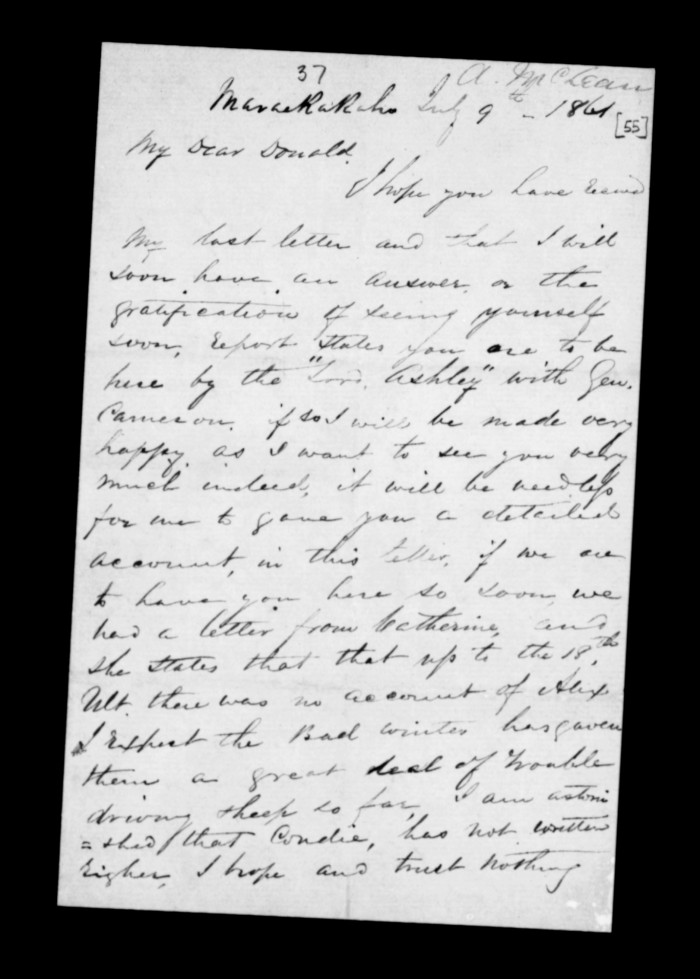 37
A. McLean
Maraekakaho July 9th - 1861
[55]
My Dear Donald.
I hope you have
My last letter and that I will
soon have an answer, or the
gratification of seeing yourself
soon, report states you are to be
here by the "Lord Ashley" with Gen.
Cameron. if so I will be made very
happy as I want to see you very
much indeed, it will be needless
for me to gave you a detailed
account, in this letter, if we are
to have you here so soon, we
had a letter from Catherine, and
she states that that up to the 18th.
Ult. there was no account of Alex
I the Bad winter has gaven
them a great deal of trouble
driving sheep so far, I am astoni
=shed that Condie, has not written
Eigher, I hope and trust nothing